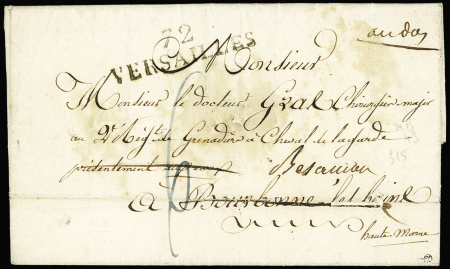 au dos
72
VERSAILLES
Monsieur
Monsieur le docteur Gral Chirurgien major
au 2e Regt de Grenadiers à Cheval de la garde
présentement Besançon
à Bourbonne
haute Marne